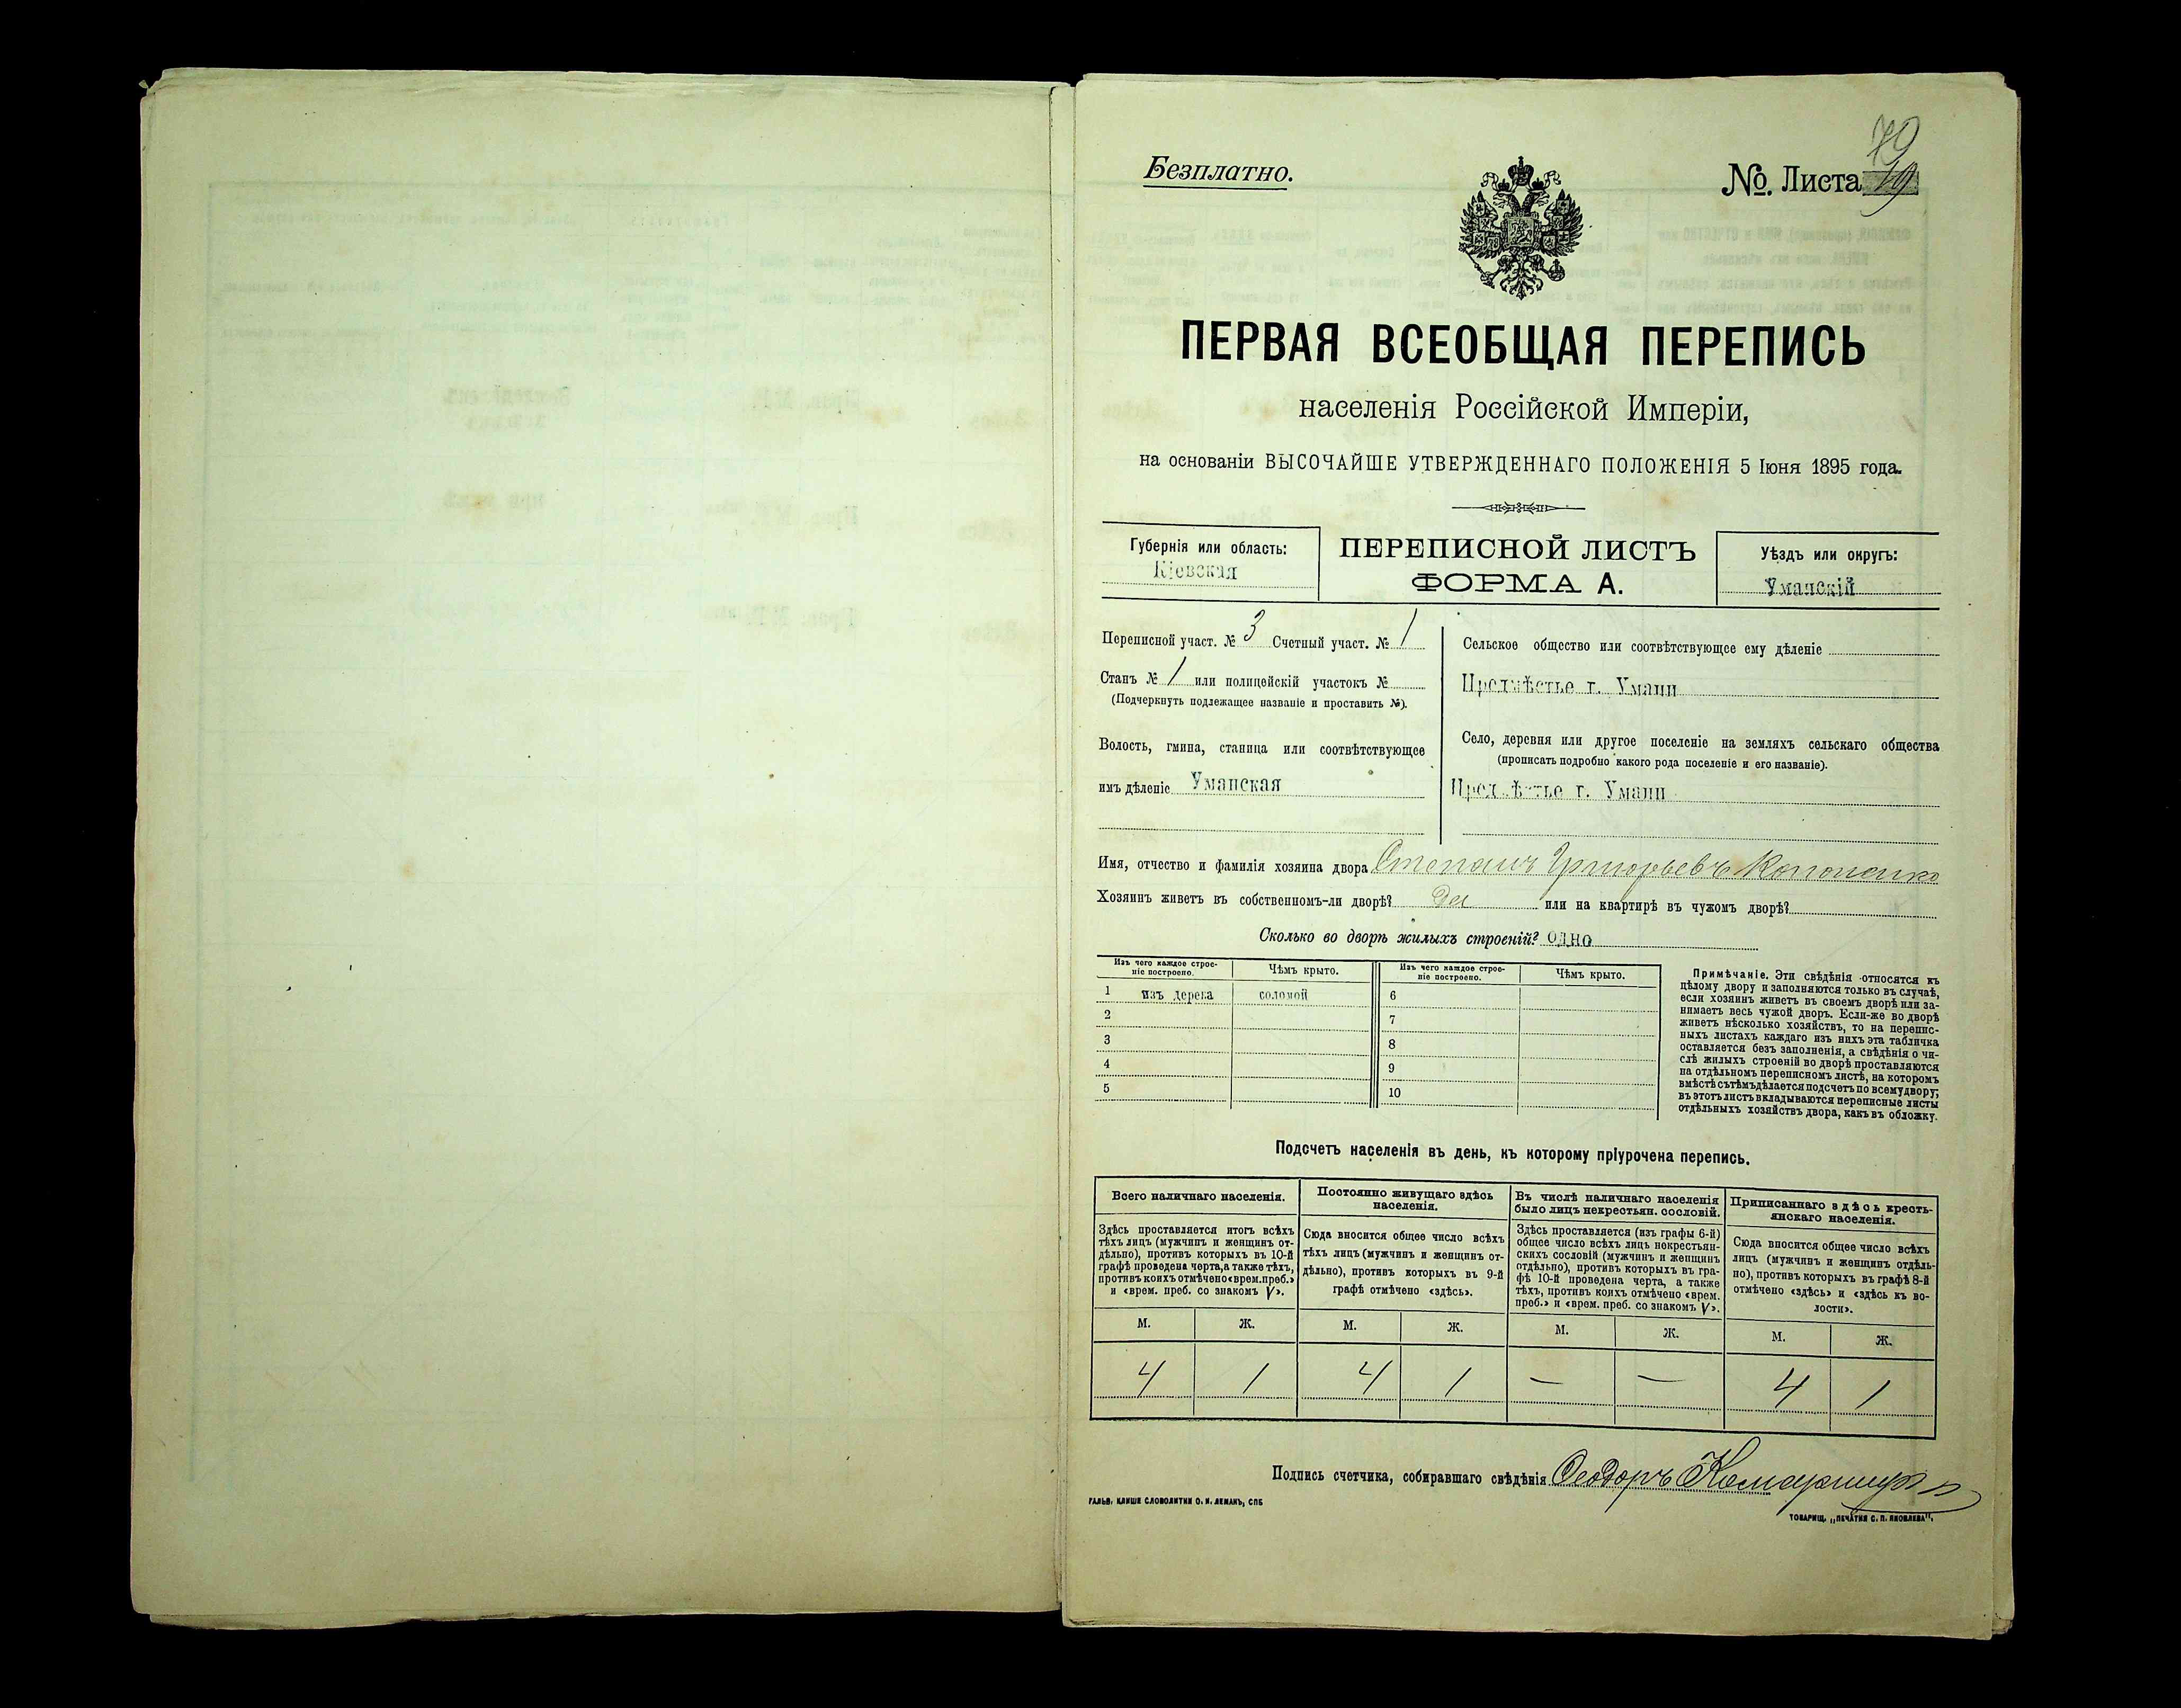 79
Безплатно.
№. Листа 79
ПЕРВАЯ ВСЕОБЩАЯ ПЕРЕПИСЬ
населенія Россійской Имперіи,
на основаніи ВЫСОЧАЙШЕ УТВЕРЖДЕННАГО ПОЛОЖЕНІЯ 5 Іюня 1895 года.
Губернія или область:
Кіевская
ПЕРЕПИСНОЙ ЛИСТЪ
ФОРМА А.
Уѣздъ или округъ:
Уманскій
Переписной участ. № 3 Счетный участ. № 1
Станъ № 1 или полицейскій участокъ №
(Подчеркнуть подлежащее названіе и проставить №).
Волость, гмина, станица или соотвѣтствующее
имъ дѣленіе Уманская
Сельское общество или соотвѣтствующее ему дѣленіе
Предмѣстье г. Умани
Село, деревня или другое поселеніе на земляхъ сельскаго общества
(прописать подробно какого рода поселеніе и его названіе).
Предмѣстье г. Умани
Имя, отчество и фамилія хозяина двора Степанъ Григорьевъ
Хозяинъ живетъ въ собственномъ-ли дворѣ? Да или на квартирѣ въ чужомъ дворѣ?
Сколько во дворѣ жилыхъ строеній? одно
Изъ чего каждое строе-
ніе построено.
Чѣмъ крыто.
Изъ чего каждое строе-
ніе построено.
Чѣмъ крыто.
1 изъ дерева соломой 6
2 7
3 8
4 9
5 10
Примѣчаніе. Эти свѣдѣнія относятся къ
цѣлому двору и заполняются только въ случаѣ,
если хозяинъ живетъ въ своемъ дворѣ или за-
нимаетъ весь чужой дворъ. Если-же во дворѣ
живетъ нѣсколько хозяйствъ, то на перепис-
ныхъ листахъ каждаго изъ нихъ эта табличка
оставляется безъ заполненія, а свѣдѣнія о чи-
слѣ жилыхъ строеній во дворѣ проставляются
на отдѣльномъ переписномъ листѣ, на которомъ
вмѣстѣ съ тѣмъ дѣлается подсчетъ по всему двору;
въ этотъ листъ вкладываются переписные листы
отдѣльныхъ хозяйствъ двора, какъ въ обложку.
Подсчетъ населенія въ день, къ которому пріурочена перепись.
Всего наличнаго населенія.
Здѣсь проставляется итогъ всѣхъ
тѣхъ лицъ (мужчинъ и женщинъ от-
дѣльно), противъ которыхъ въ 10-й
графѣ проведена черта, а также тѣхъ,
противъ коихъ отмѣчено «врем. преб.»
и «врем. преб. со знакомъ V».
Постоянно живущаго здѣсь
населенія.
Сюда вносится общее число всѣхъ
тѣхъ лицъ (мужчинъ и женщинъ от-
дѣльно), противъ которыхъ въ 9-й
графѣ отмѣчено «здѣсь».
Въ числѣ наличнаго населенія
было лицъ некрестьян. сословій.
Здѣсь проставляется (изъ графы 6-й)
общее число всѣхъ лицъ некрестьян-
скихъ сословій (мужчинъ и женщинъ
отдѣльно), противъ которыхъ въ гра-
фѣ 10-й проведена черта, а также
тѣхъ, противъ коихъ отмѣчено «врем.
преб.» и «врем. преб. со знакомъ V».
Приписаннаго здѣсь кресть-
янскаго населенія.
Сюда вносится общее число всѣхъ
лицъ (мужчинъ и женщинъ отдѣль-
но), противъ которыхъ въ графѣ 8-й
отмѣчено «здѣсь» и «здѣсь къ во-
лости».
М. Ж. М. Ж. М. Ж. М. Ж.
4 1 4 1 — — 4 1
Подпись счетчика, собиравшаго свѣдѣнія Ѳеодоръ
ГАЛЬВ. КЛИШЕ СЛОВОЛИТНИ О. И. ЛЕМАНЪ, СПБ
ТОВАРИЩ. „ПЕЧАТНЯ С. П. ЯКОВЛЕВА".